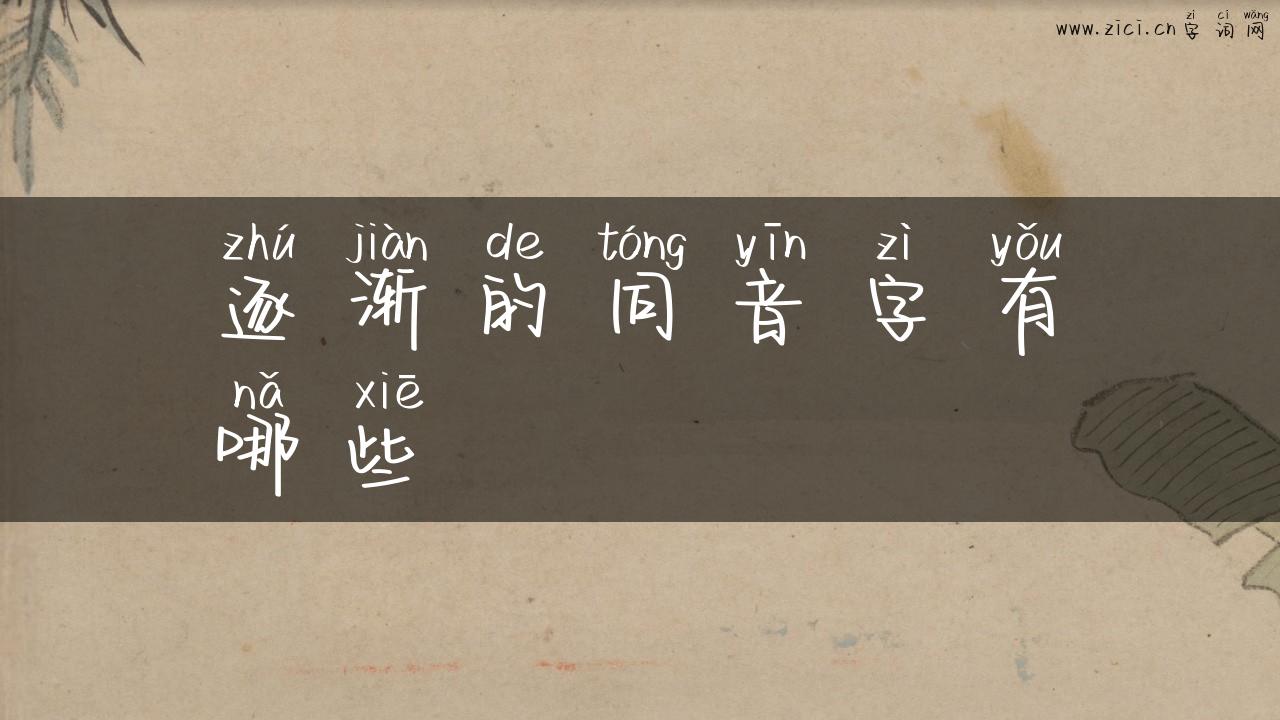 zì cí wǎng
www.zici.cn 字 词 网
zhú jiàn de tóng yīn zì yǒu
逐 渐 的 同 音 字 有
nǎ xiē
哪 些